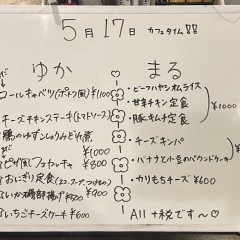 5月17日 カフェタイム!!
ゆか ♡ まる
ロールキャベツ(ポトフ風) ¥1100
チーズチキンステーキ(トマトソース)
鶏のゆずしょうがみぞれ煮
¥1000
ピザ風フォカッチャ ¥800
おにぎり定食
いか磯部揚げ ¥900
いちごチーズケーキ ¥600
・ビーフハヤシオムライス
・甘辛チキン定食
・豚キムチ定食
¥1000
・チーズキンパ
・バナナと小豆のパウンドケーキ
・かりもちチーズ ¥600
All 十穀です〜♡